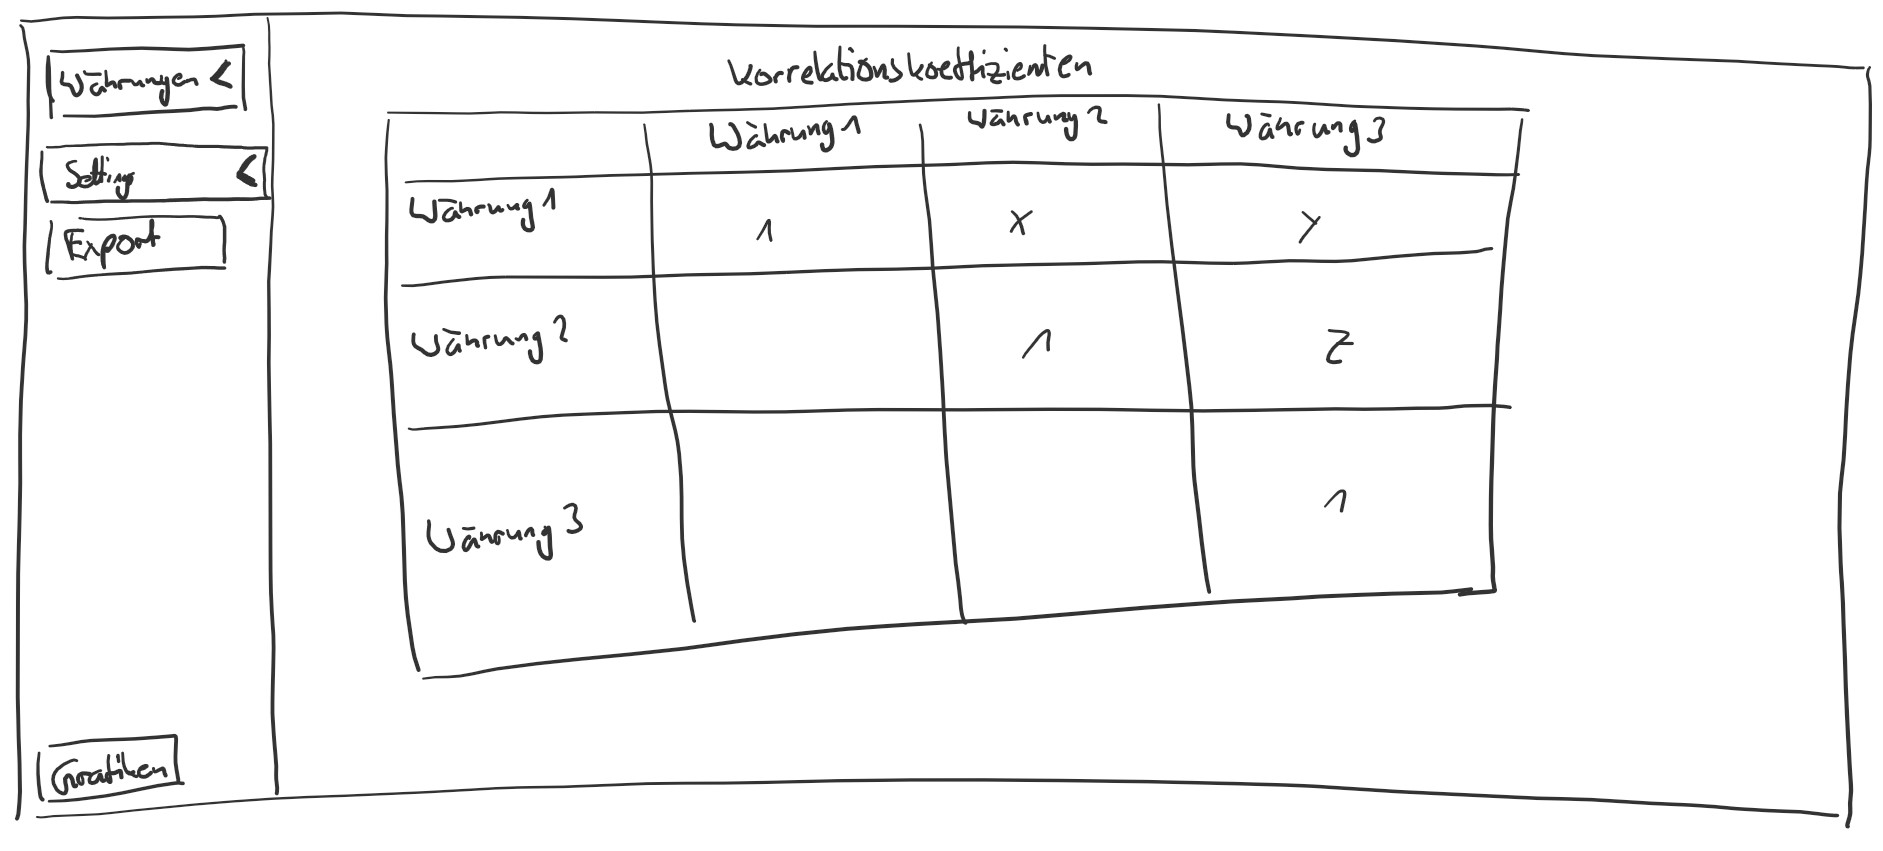 Währungen <
Settings <
Export
Grafiken
Korrelationskoeffizienten
Währung 1 Währung 2 Währung 3
Währung 1 1 X Y
Währung 2 1 Z
Währung 3 1